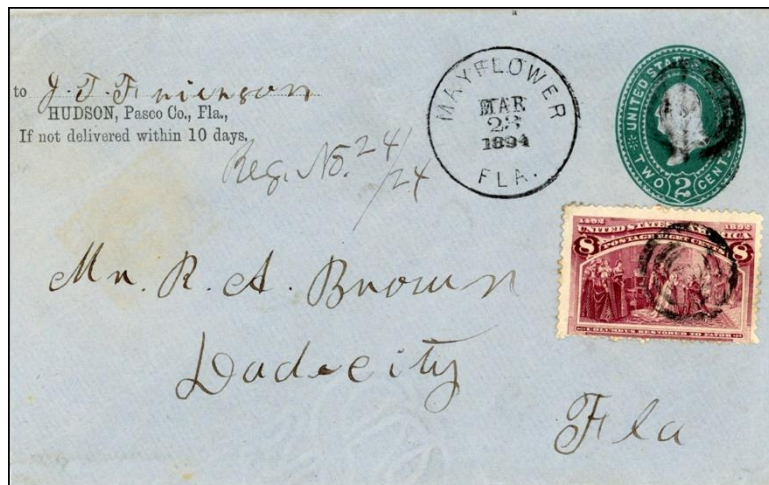 to J. T. F
HUDSON, Pasco Co., Fla.,
If not delivered within 10 days.
Reg. No. 24/24
MAYFLOWER
MAR
23
1894
FLA.
UNITED STATES
TWO 2 CENTS
1492 1892
UNITED STATES OF AMERICA
8 POSTAGE EIGHT CENTS 8
COLUMBUS RESTORED TO FAVOR
Mr. R. A. Brown
Dade city
Fla